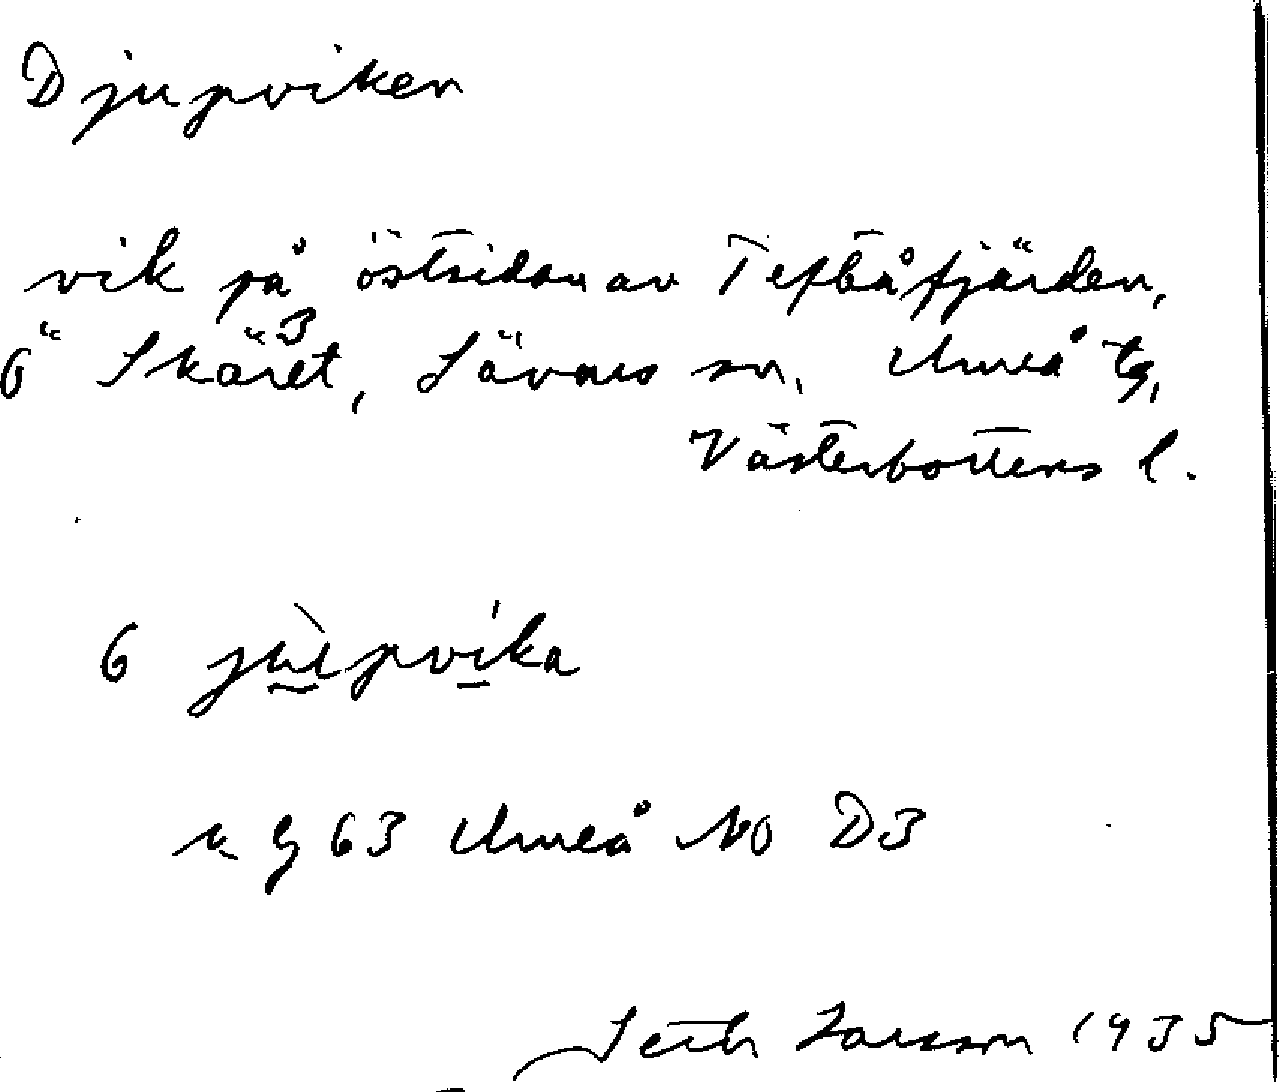 Djupviken
vik på östsidan av Teftåfjärden,
Ö Skäret, Sävars sn, Umeå tg,
3
Västerbottens l.
6 jùpvi̍ka
63 Umeå NO D3
Seth Larsson 1935